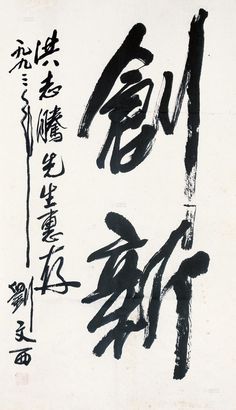 創新
洪志騰先生惠存
一九九三年
劉文西